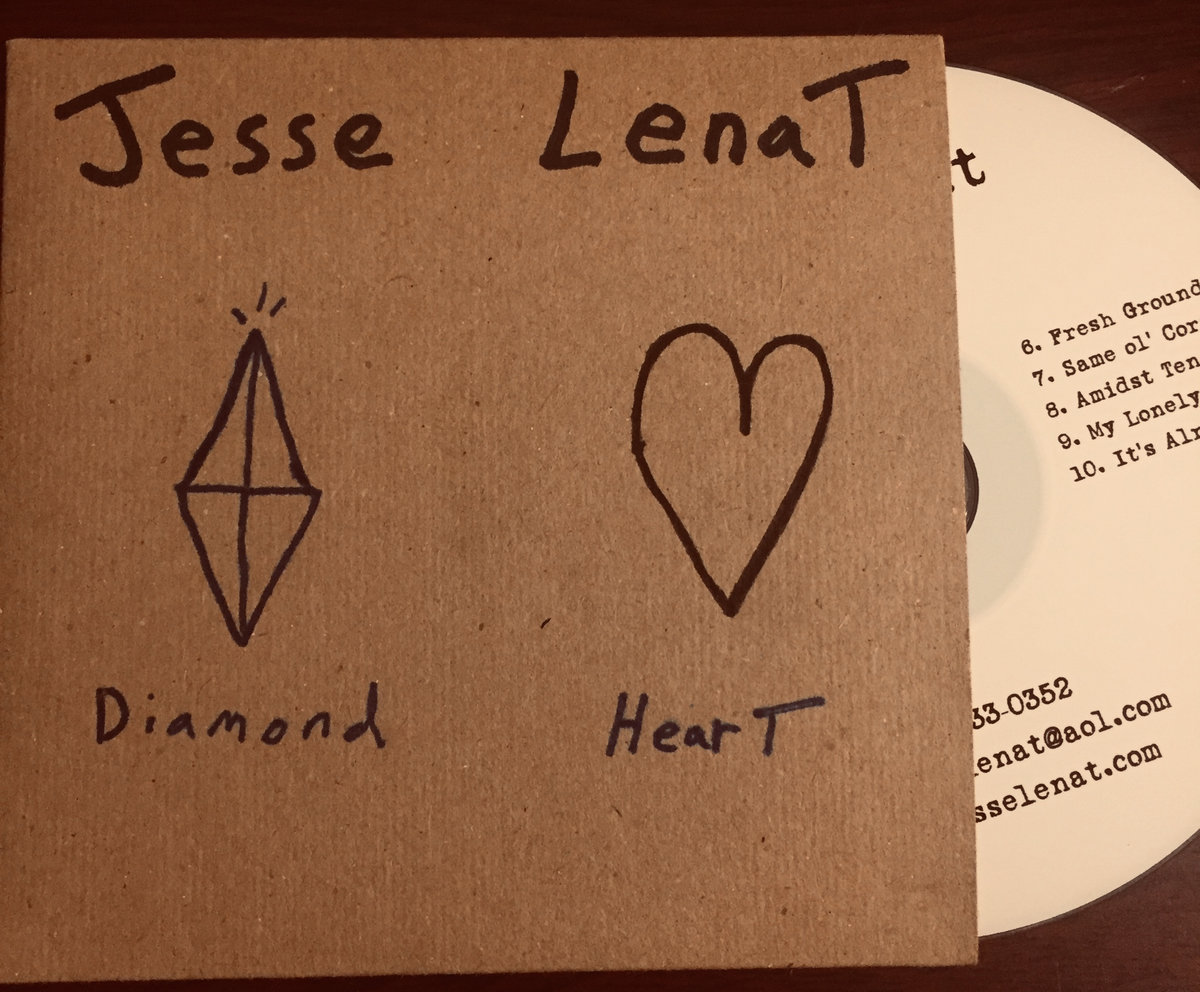 Jesse LenaT
Diamond HearT
t
6. Fresh Ground
7. Same ol' Cor
8. Amidst Ten
9. My Lonely
10. It's Alr
33-0352
enat@aol.com
sselenat.com